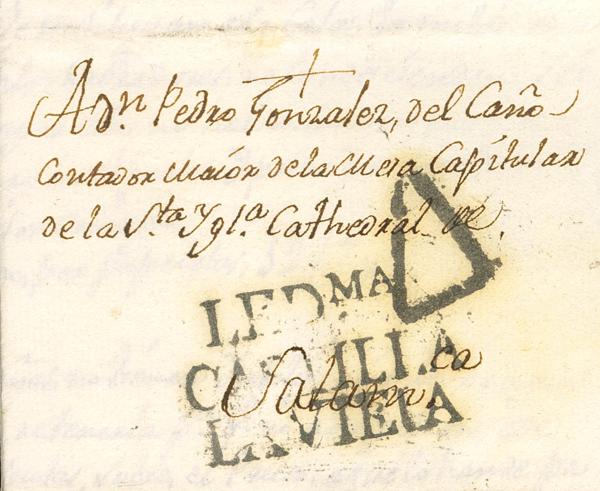 A dn Pedro Gonzalez, del Caño
Contador Maior de la Mesa Capitular
de la Sta Ygla Cathedral de.
LEDMA
CASTILLA
Salamca
LAVIEIA